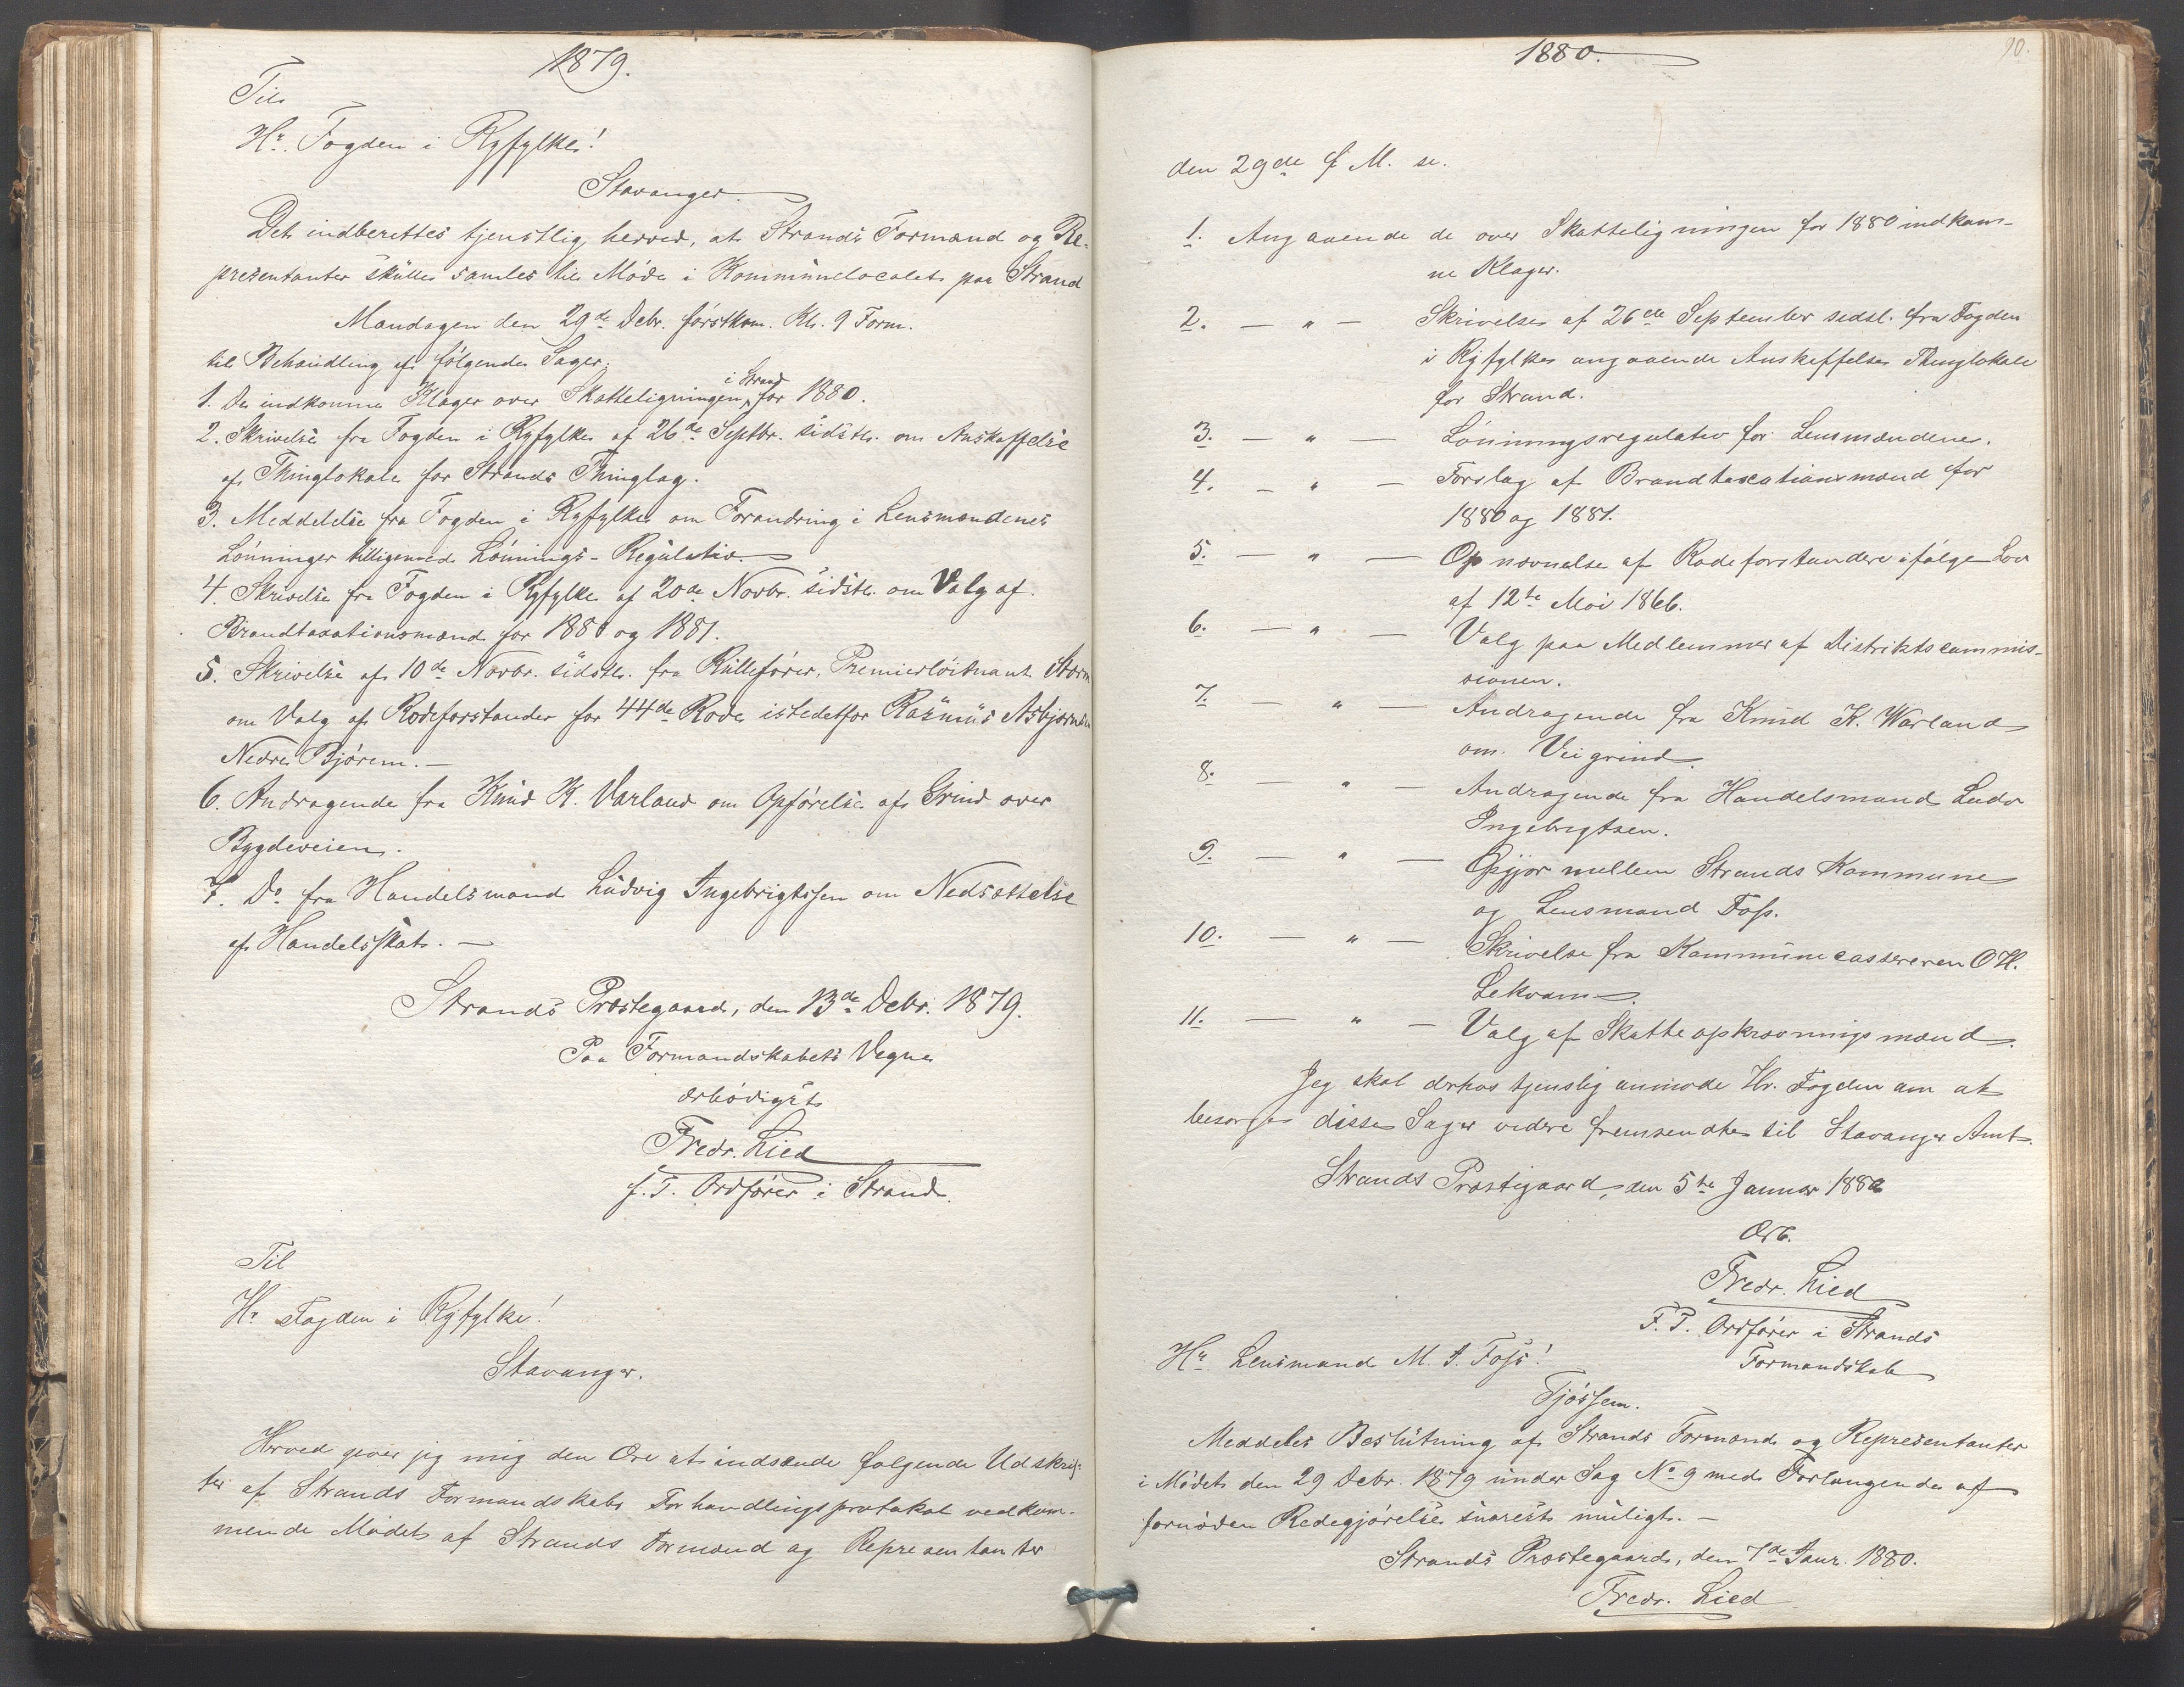 1879.
Til
Hr. Fogden i Ryfylke!
Stavanger.
Det indberettes tjenstlig herved, at Strands Formænd og Re-
præsentanter skulle samles til Møde i Kommunelocalet paa Strand
Mandagen den 29de Debr. førstkom. Kl. 9 Form.
til Behandling af følgende Sager:
1. De indkomne Klager over Skatteligningen i Strand for 1880.
2. Skrivelse fra Fogden i Ryfylke af 26de Septbr. sidstl. om Anskaffelse
af Thinglokale for Strands Thinglag.
3. Meddelelse fra Fogden i Ryfylke om Forandring i Lensmændenes
Lønninger tilligemed Lønnings-Regulativ.
4. Skrivelse fra Fogden i Ryfylke af 20de Novbr. sidstl. om Valg af
Brandtaxationsmænd for 1880 og 1881.
5. Skrivelse af 10de Novbr. sidstl. fra Rullefører, Premierløitnant Storm
om Valg af Rodeforstander for 44de Rode istedetfor Rasmus Asbjørnsen
Nedre Bjørem. —
6. Andragende fra Knud K. Varland om Opførelse af Grind over
Bygdeveien.
7. Do fra Handelsmand Ludvig Ingebrigtssen om Nedsættelse
af Handelsskat. —
Strands Præstegaard, den 13de Debr. 1879.
Paa Formandskabets Vegne
ærbødigst
Fredr. Lied
f. T. Ordfører i Strand.
Til
Hr Fogden i Ryfylke!
Stavanger.
Herved giver jeg mig den Ære at indsende følgende Udskrif-
ter af Strands Formandskabs Forhandlingsprotokol vedkom-
mende Mødet af Strands Formænd og Repræsentanter
1880.
90.
den 29de f. M. se.
1. Angaaende de over Skatteligningen for 1880 indkom-
ne Klager.
2. — " — Skrivelse af 26de September sidstl. fra Fogden
i Ryfylke angaaende Anskaffelse Thinglokale
for Strand.
3. — " — Lønningsregulativ for Lensmændene.
4. — " — Forslag af Brandtaxationsmænd for
1880 og 1881.
5. — " — Opnævnelse af Rodeforstandere ifølge Lov
af 12te Mai 1866.
6. — " — Valg paa Medlemmer af Distriktscommis-
sionen.
7. — " — Andragende fra Knud K. Warland
om Veigrind.
8. — " — Andragende fra Handelsmand Ludv
Ingebrigtsen.
9. — " — Opgjør mellem Strands Kommune
og Lensmand Foss.
10. — " — Skrivelse fra Kommunecassereren O H.
Lekvam.
11. — " — Valg af Skatteopkrævningsmænd.
Jeg skal derhos tjenslig anmode Hr. Fogden om at
besørge disse Sager videre fremsendte til Stavanger Amt.
Strands Præstegaard, den 5te Januar 1880
Ærb.
Fredr. Lied
F. T. Ordfører i Strands
Formandskab
Hr. Lensmand M. A. Foss!
Tjøssem.
Meddeles Beslutning af Strands Formænd og Repræsentanter
i Mødet den 29 Debr. 1879 under Sag No 9 med Forlangende af
fornøden Redegjørelse snarest muligt. —
Strands Præstegaard, den 7de Janr. 1880.
Fredr. Lied